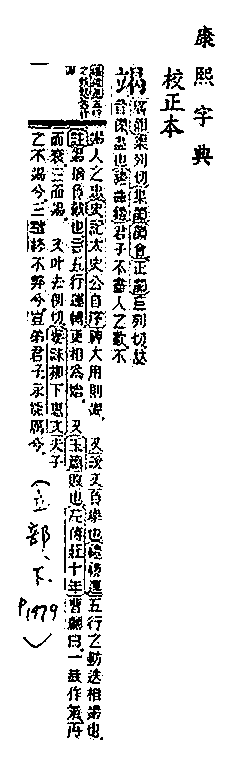 康熙字典
校正本
竭
廣韻渠列切集韻韻會正韻巨列切𠀤
音傑盡也禮曲禮君子不盡人之歡不
竭人之忠史記太史公自序神大用則竭。又說文負舉也禮禮運五行之動迭相竭也。
註竭猶負戴也言五行運轉更相爲始。又玉篇敗也左傳莊十年曹劌曰。一鼓作氣再
而衰三而竭。又叶去例切妻誄柳下惠文夫子
之不竭兮三黜終不弊兮豈弟君子永能厲兮。
(立部、下 P1479)